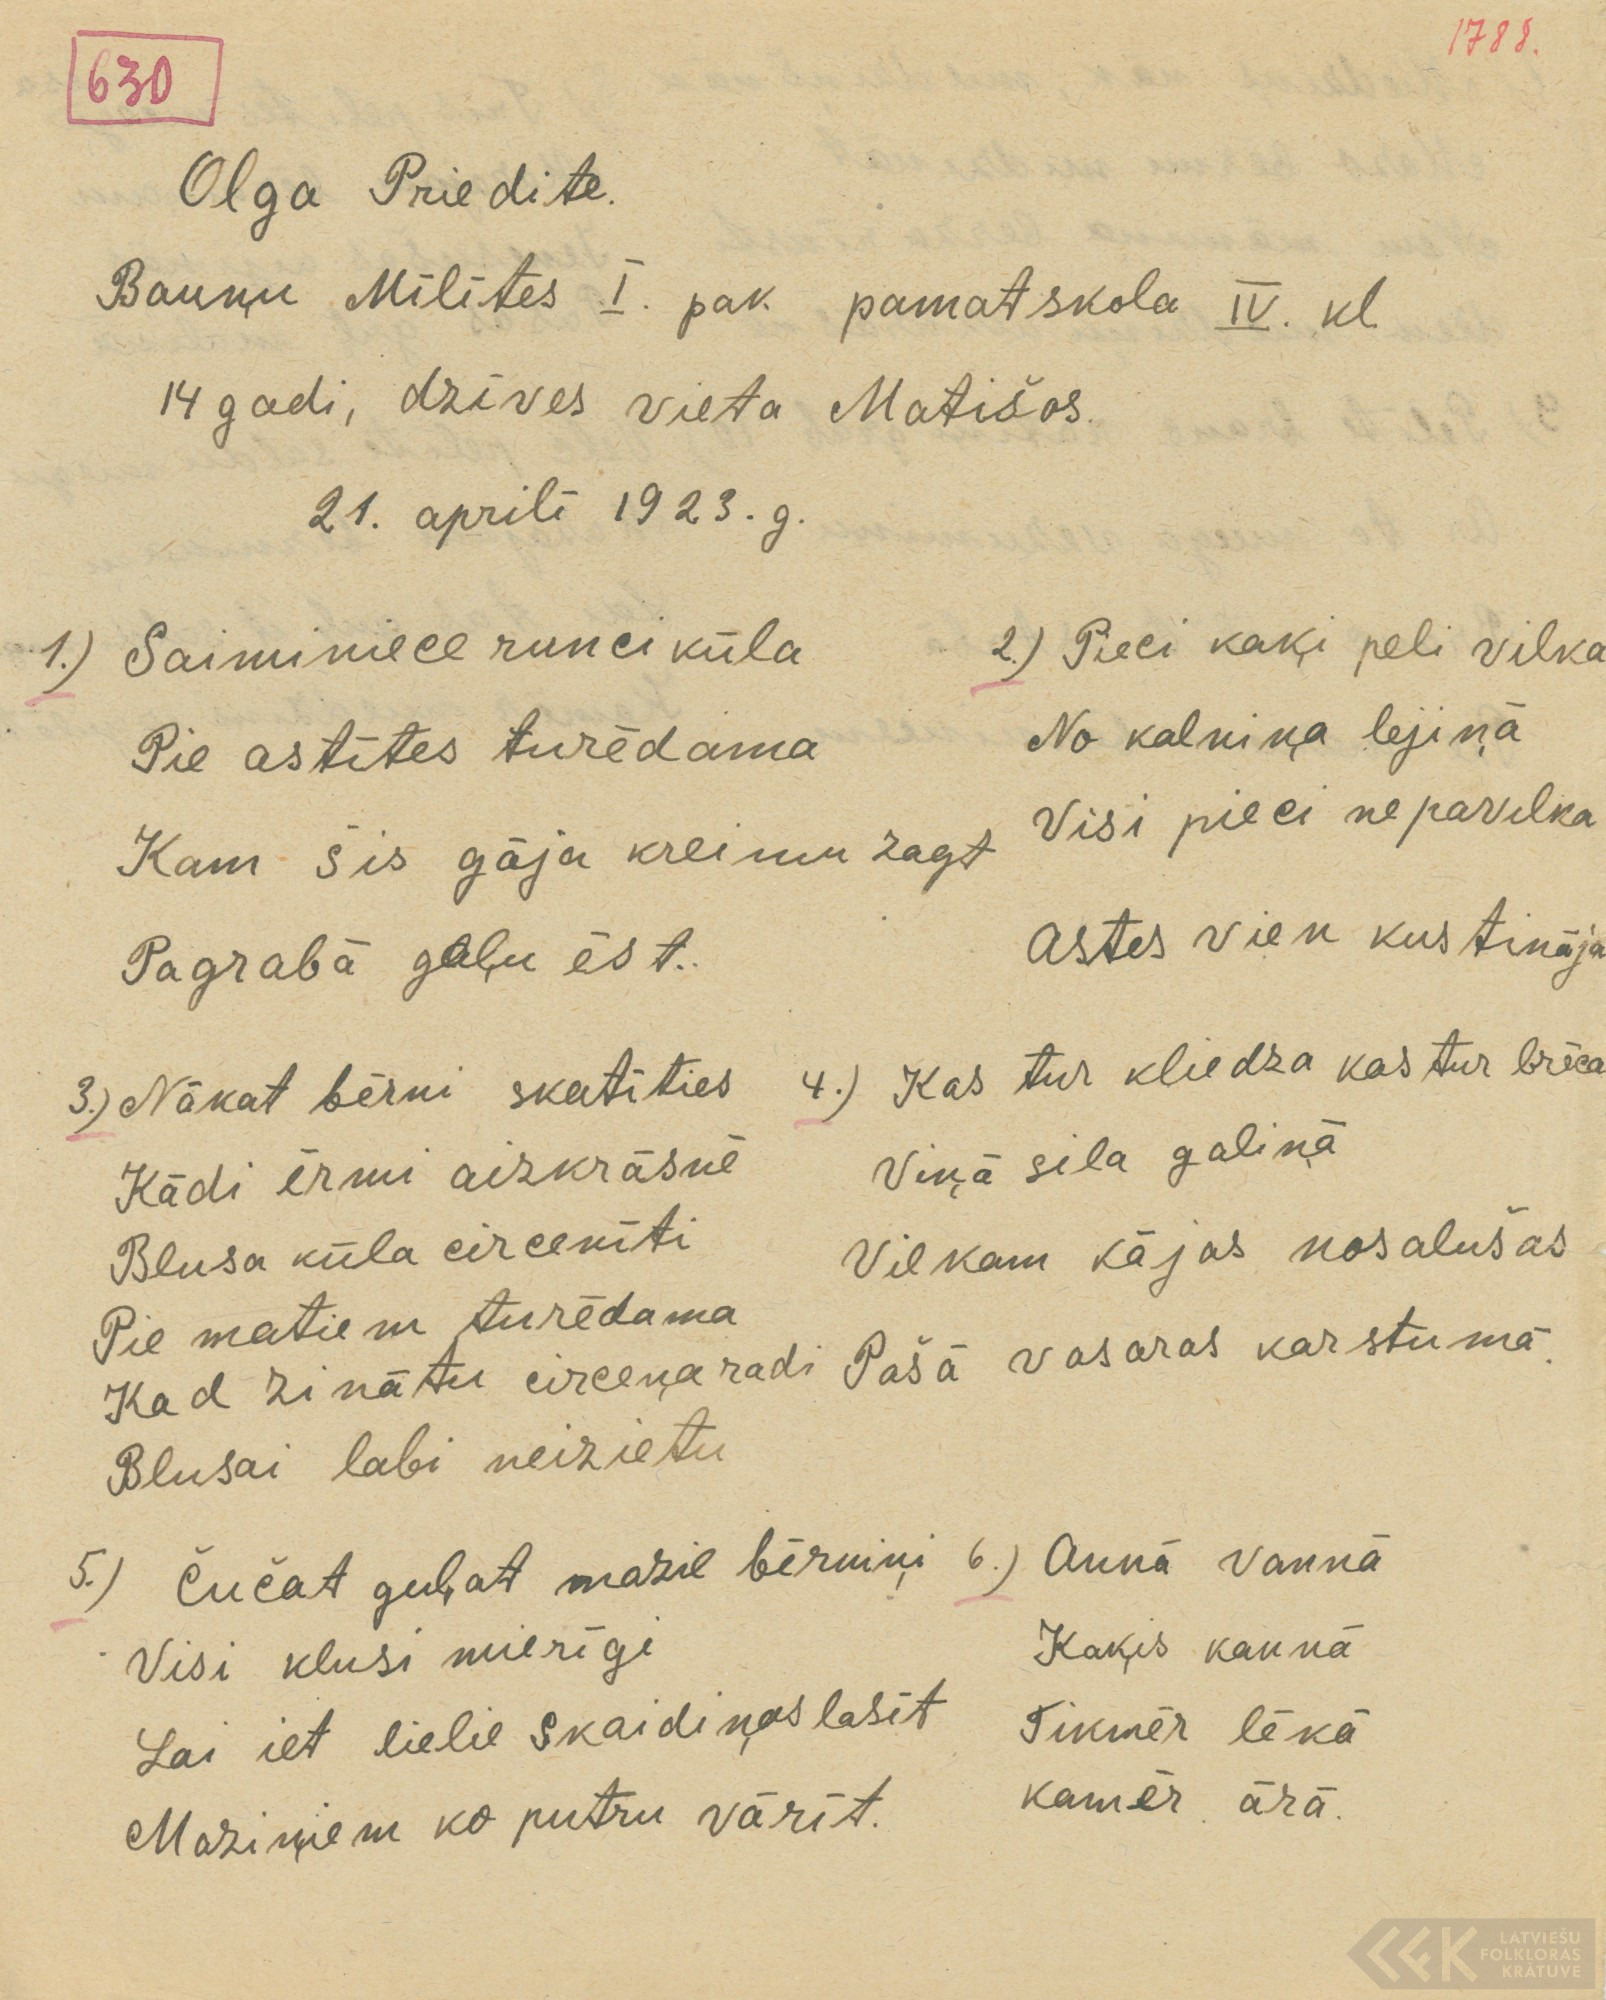 630
1788.
Olga Priedite.
Bauņu Mīlītes I. pak pamatskola IV. kl
14 gadi, dzīves vieta Matišos.
21. aprilī 1923. g.
1.) Saiminiece runci kūla
Pie astītes turēdama
Kam šis gāja kreimu zagt
Pagrabā gaļu ēst..
2.) Pieci kaķi peli vilka
No kalniņa lejiņā
Visi pieci nepavilka
Astes vien kustināja
3.) Nākat bērni skatīties
Kādi ērmi aizkrāsnē
Blusa kūla circenīti
Pie matiem turēdama
Kad zinātu circeņa radi
Blusai labi neizietu
4.) Kas tur kliedza kas tur brēca
Viņā sila galiņā
Vilkam kājas nosalušas
Pašā vasaras karstumā.
5.) Čučat guļat mazie bērniņi
Visi klusi mierīgi
Lai iet lielie skaidiņas lasīt
Maziņiem ko putru vārīt.
6.) Annā vannā
Kaķis kannā
Tikmēr lēkā
kamēr ārā.
LATVIEŠU
FOLKLORAS
KRĀTUVE